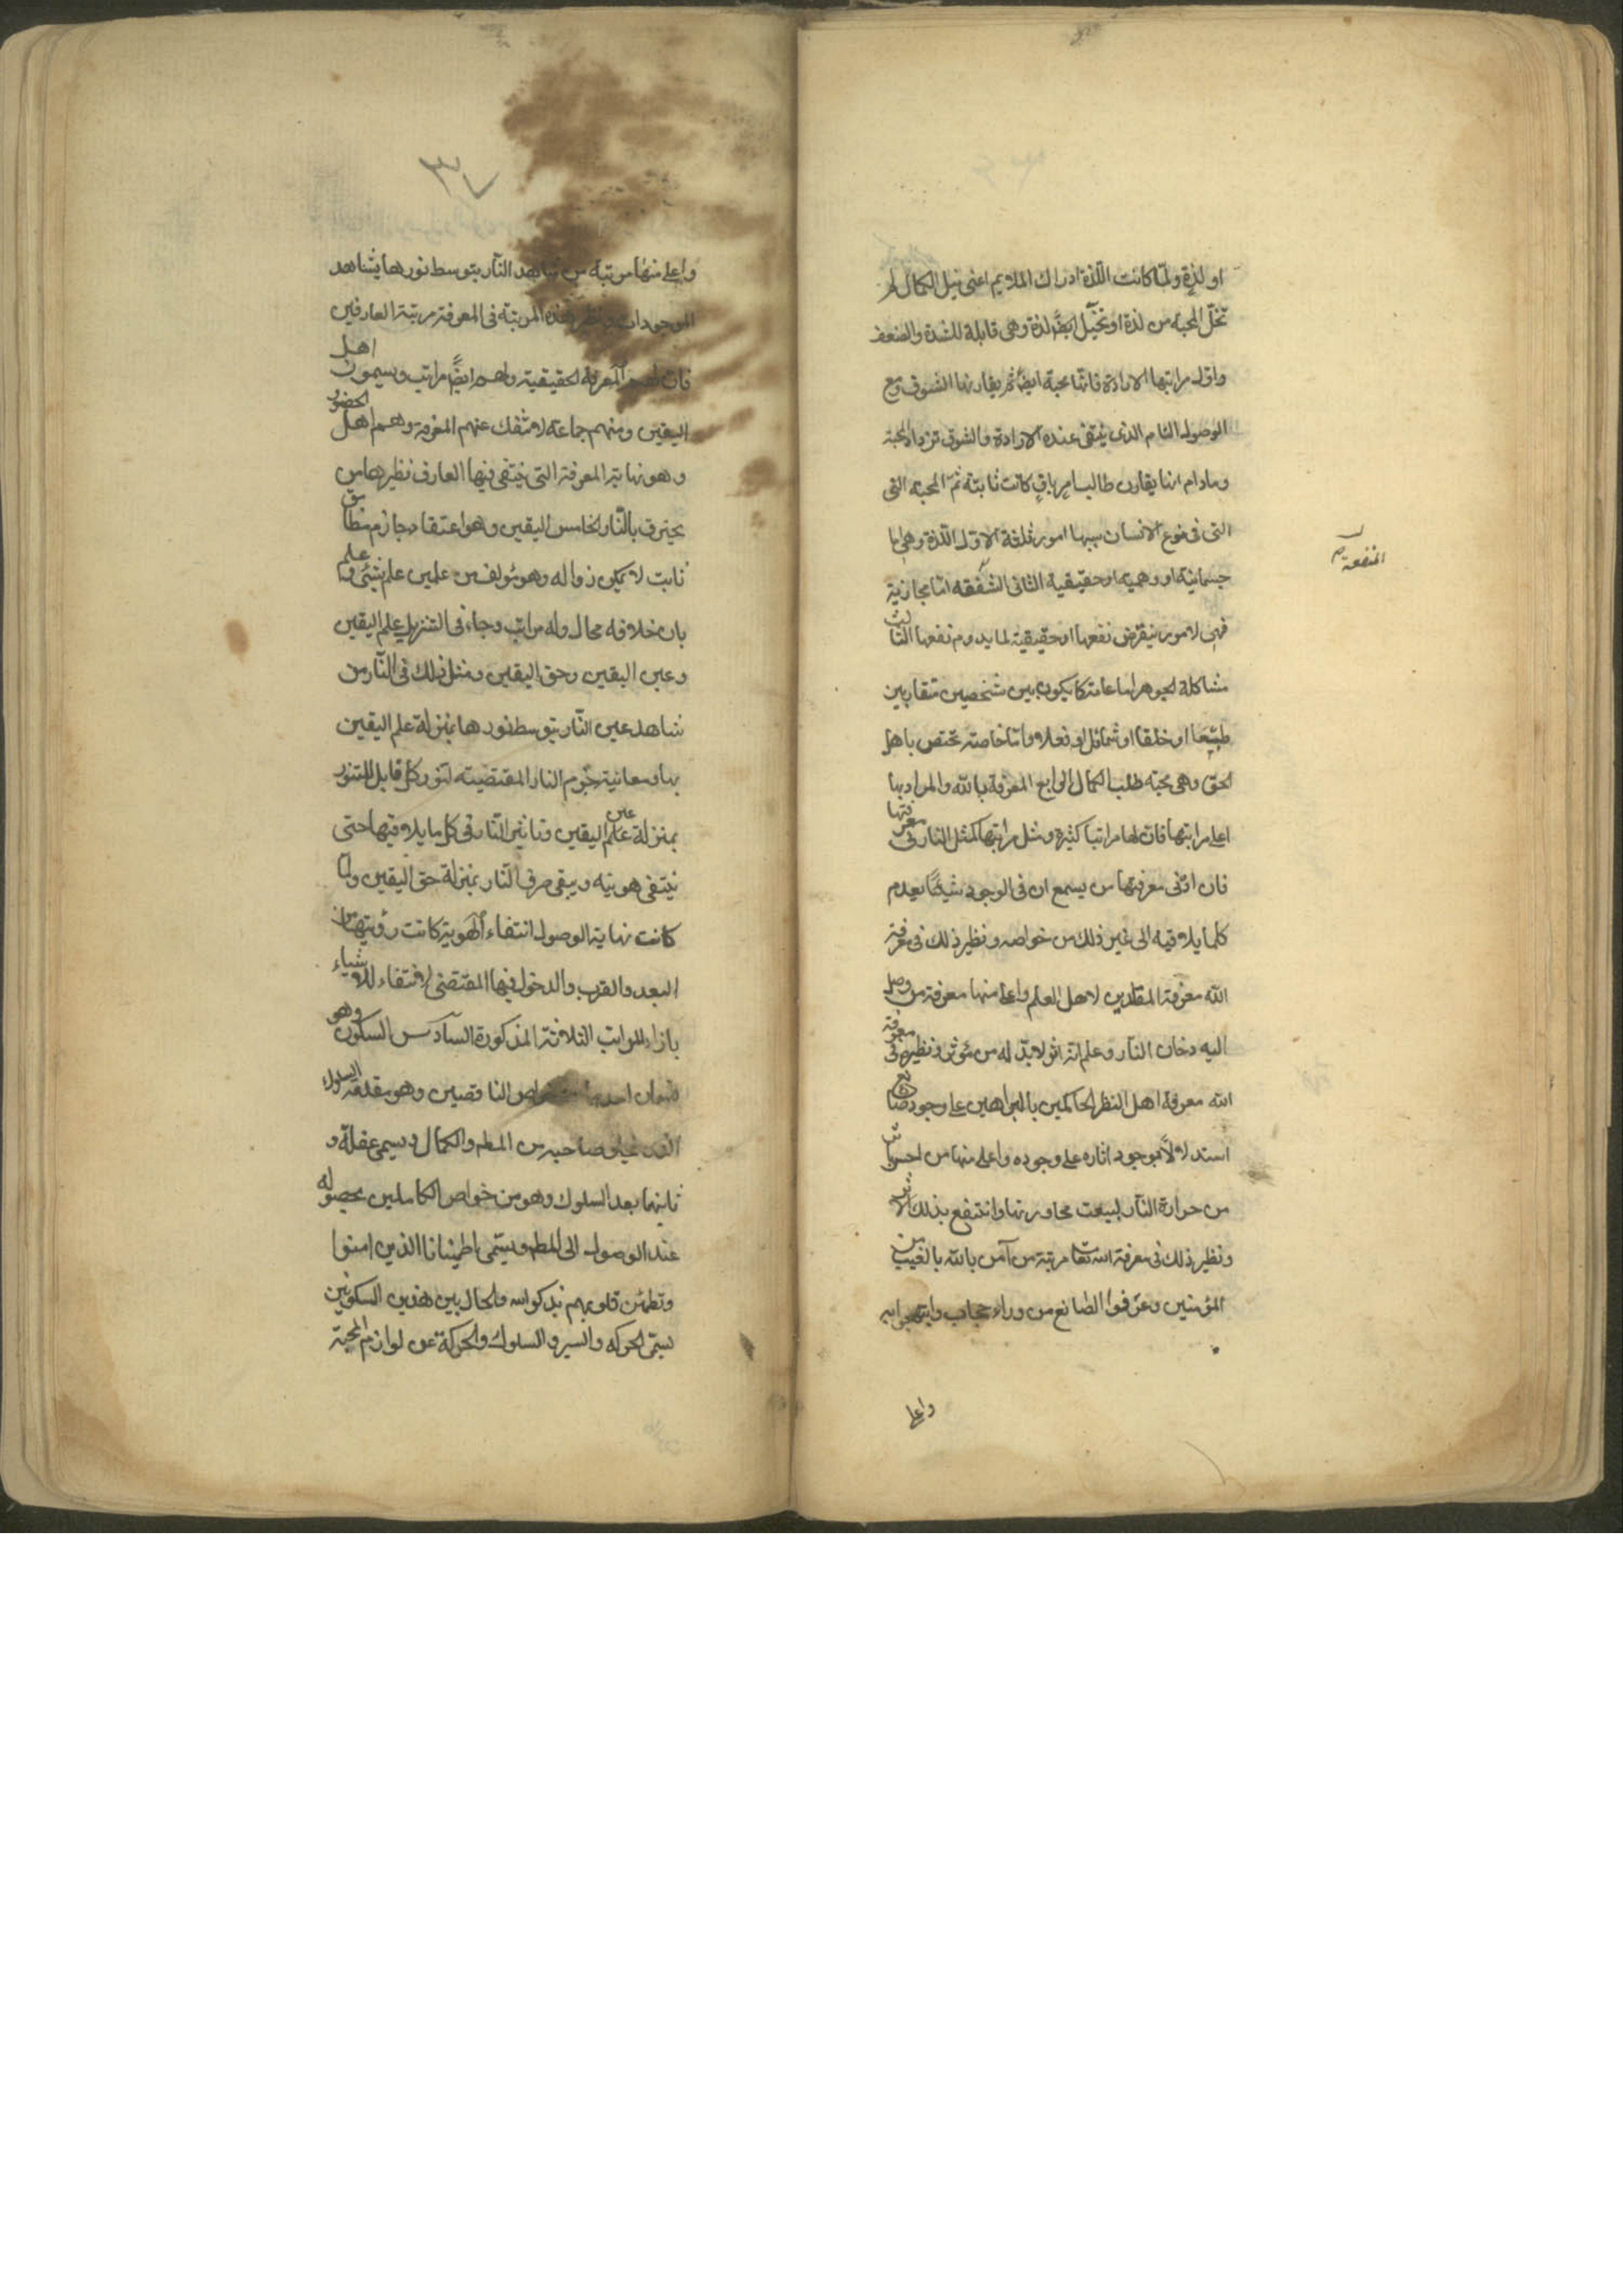 او لذة ولمّا كانت اللّذة ادراك الملايم اعنى نيل الكمال لم
تخل المحبة من لذة او تخيّل ايضًا لذة وهى قابلة للشدة والضعف
واول مراتبها الارادة فانّها محبة ايضًا ثم يقارنها الشوق ومع
الوصول التام الذى ينتفى عنده الارادة والشوق تزداد المحبة
ومادام اثنا يقارن طالبا مرباقٍ كانت ثابتة ثمّ المحبة التى
التى فى نوع الانسان سببها امور ثلثة الاول اللّذة وهى اما
جسمانية او وهمية او حقيقية الثانى الشفقه امّا مجازية
فهى لامور ينقرض نفعها او حقيقية لما يدوم نفعها الثالث
المنفعة صح
مشاكلة الجوهر اما عامة كما يكون بين شخصين متقاربين
طبيعا او خلقا او شمائل او فعلا واما خاصة تختص باهل
الحق وهى محبة طلب الكمال الرابع المعرفة بالله والمراد بها
اعلى مراتبها فان لها مراتبا كثيرة ومثل مراتبها كمثل النار فى معرفتها
فان ادنى معرفتها من يسمع ان فى الوجود شيئًا يعدم
كلما يلاقيه الى غير ذلك من خواصه ونظير ذلك فى معرفة
الله معرفة المقلدين لاهل العلم واعلى منها معرفة من وصل
اليه دخان النار وعلم انه اثر لابدّ له من مؤثر ونظيره فى معرفة
الله معرفة اهل النظر الحاكمين بالبراهين على وجود صانع
استدلالا بوجود اثاره على وجوده واعلى منها من احس
من حرارة النار بسبب مجاورتها وانتفع بذلك الاثر
ونظير ذلك فى معرفة الله تعا مرتبة من آمن بالله بالغيب من
المؤمنين وعرفوا الصانع من وراء حجاب وابتهجوا به
واعلى
٣٧
واعلى منها مرتبة من شاهد النّار بتوسط نورها يشاهد
الموجودات ونظير هذه المرتبة فى المعرفة مرتبة العارفين
فان لهم المعرفة الحقيقية ولهم ايضًا مراتب ويسمون اهل
اليقين ومنهم جماعة لا تنفك عنهم المعرفة وهم اهل الحضور
وهو نهاية المعرفة التى ينتفى فيها العارف نظيرها من
يحترق بالنّار الخامس اليقين وهو اعتقاد جازم مطابق
ثابت لا يمكن زواله وهو مؤلف من علمين علم بشئ وعلم
بان خلافه محال وله مراتب وجاء فى التنزيل علم اليقين
وعين اليقين وحق اليقين ومثل ذلك فى النّار من
شاهد عين النّار بتوسط نورها بمنزلة علم اليقين
بها ومعاينة جرم النار المقتضية لتنور كل قابل للتنور
بمنزلة علم عين اليقين وتاثير النّار فى كل ما يلاقيها حتى
ينتفى هويته ويبقى صرف النّار بمنزلة حق اليقين ولما
كانت نهاية الوصول انتفاء الهوية كانت رؤيتها من
البعد والقرب والدخول فيها المقتضى لانتفاء الاشياء
بازاء المراتب الثلاثة المذكورة السادس السكون وهو
قسمان احدهما من خواص الناقصين وهو مقدمة السلوك
الذى يخلو صاحبه من المطم والكمال ويسمى غفلة و
ثانيهما بعد السلوك وهو من خواص الكاملين بحصوله
عند الوصول الى المطم ويسمى اطمينانا الذين امنوا
وتطمئن قلوبهم بذكر الله والحال بين هذين السكونين
يسمّى الحركه والسير والسلوك والحركة من لوازم المحبة